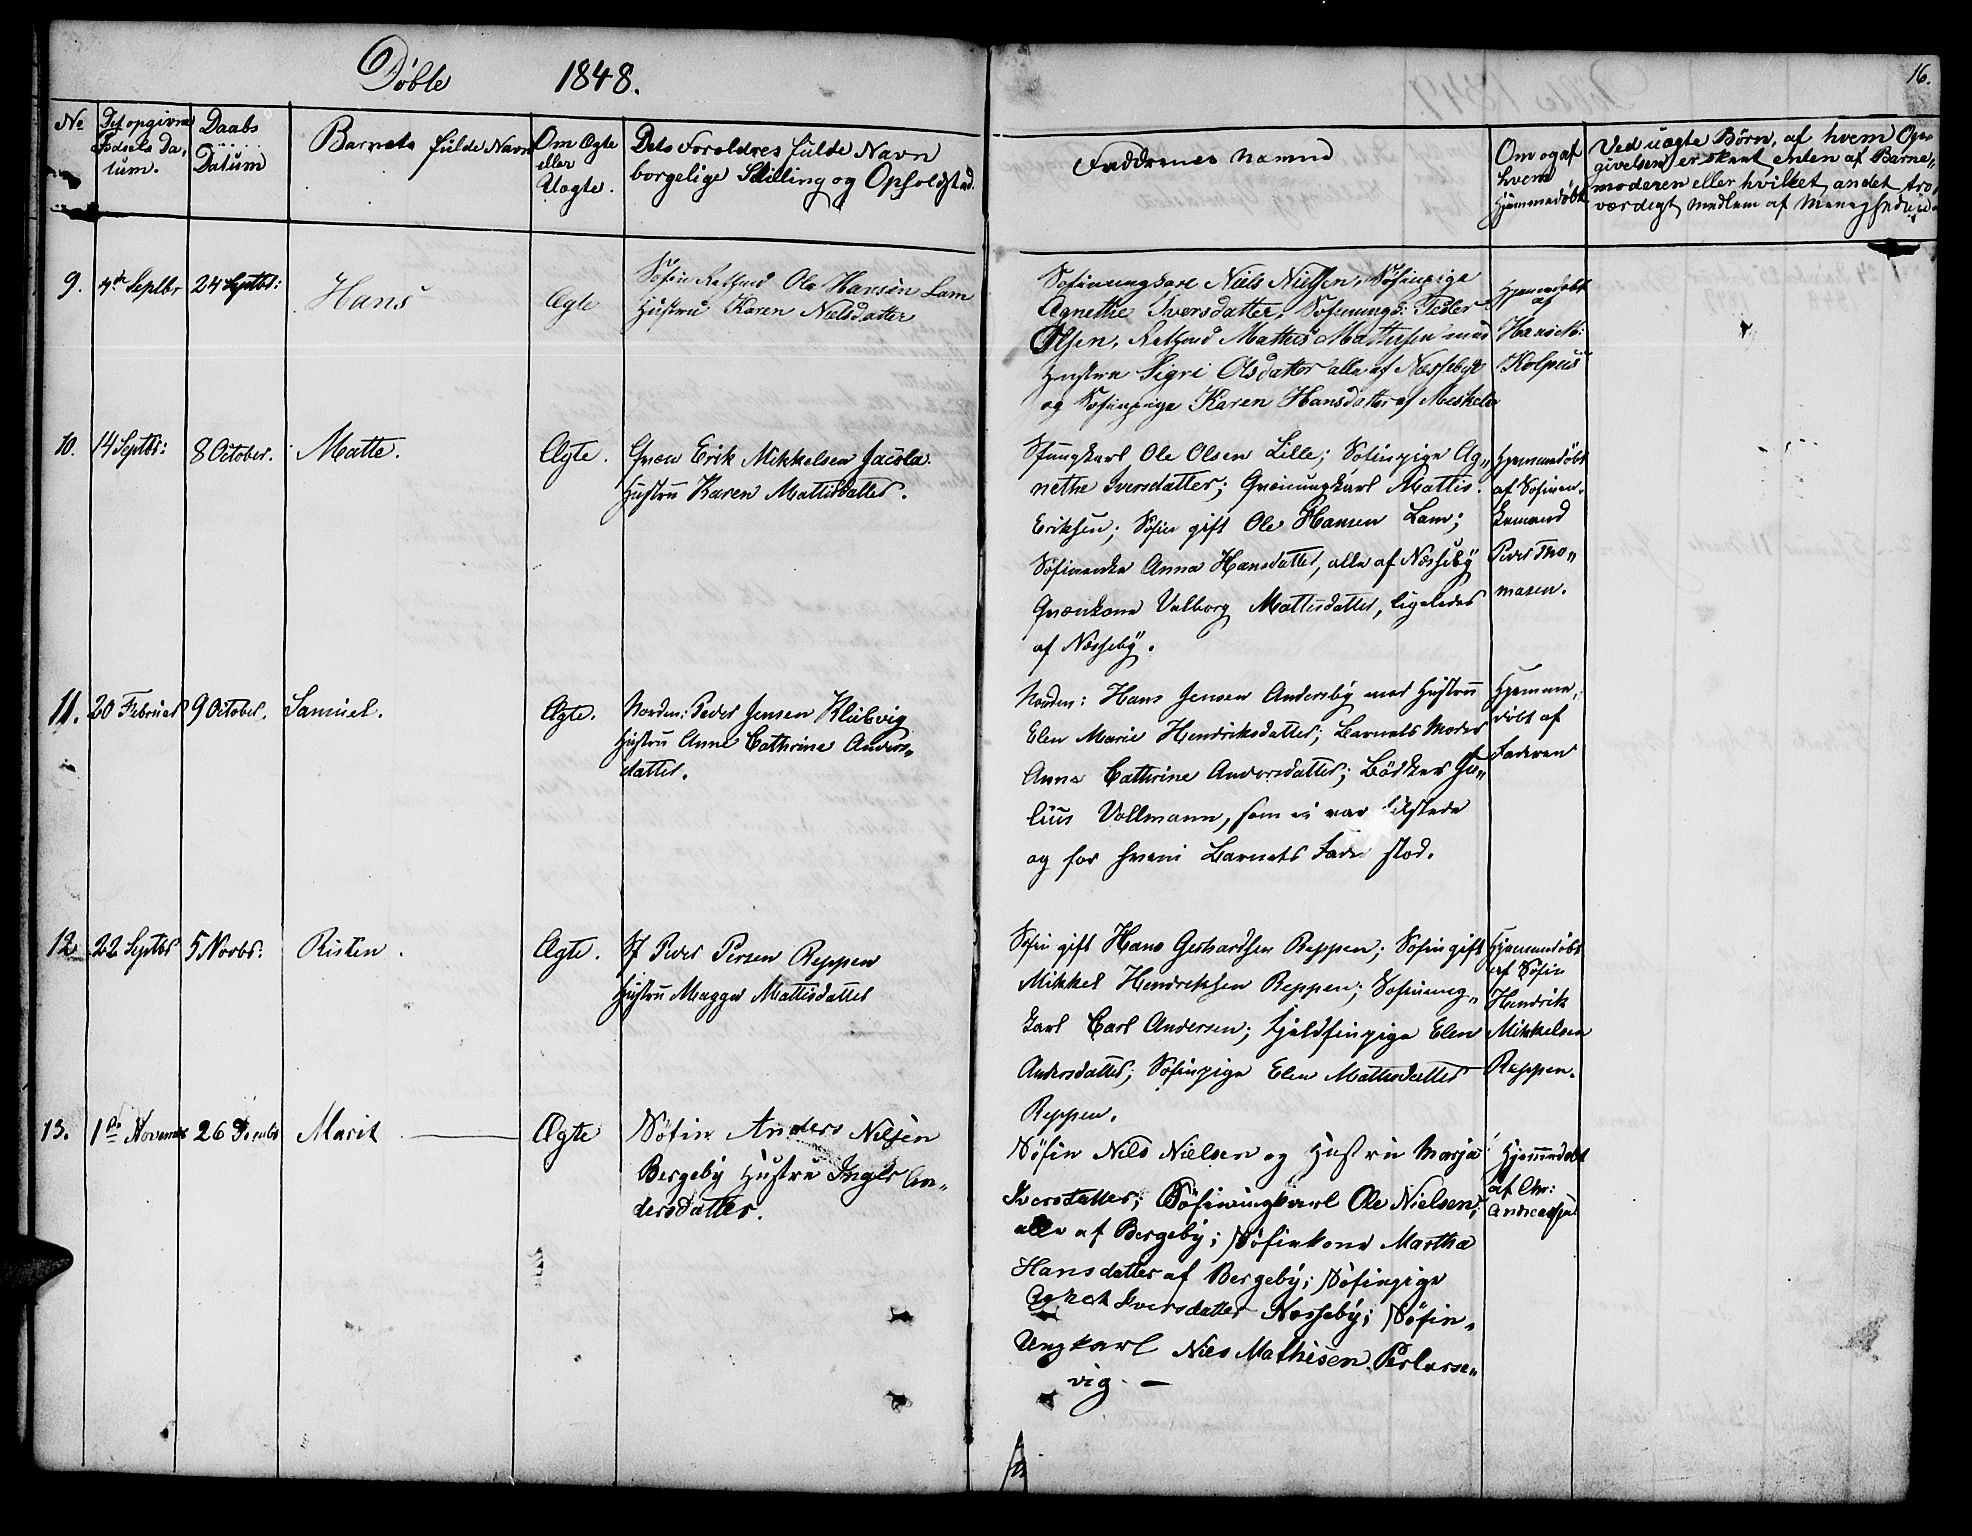 Döbte 1848.
16.
No
Det opgivne
Fødsels Da,
tum.
Daabs
Datum
Barnets fulde Navn
Om Ægte
eller
Uægte.
Dets Foreldres fulde Navn
borgelige Stilling og Opholdsted.
Faddrenes Navne
Om og af
hvem
Hjemmedøbt
Ved uægte Børn, af hvem Op„
givelsen er skeet enten af Barne„
moderen eller hvilket andet tro„
værdigt Medlem af Menigheden
9. 4de Septbr 24 Septbr: Hans Ægte
Søfin Ole Hansen Lam
Hustru Karen Nielsdatter
Søfinungkarl Niels Nielsen, Søfinpige
Agnethe Iversdatter, Søfinungk: Peder
Olsen, Mathis Mathisen med
Hustru Sigri Olsdatter alle af Næsseby
og Søfinpige Karen Hansdatter af Meskelv
Hjemmedøbt
af
Hans M:
Kolpus
10. 14 Septbr: 8 October. Matte. Ægte.
Qvæn Erik Mikkelsen Jacola.
Hustru Karen Mattisdatter.
Sfungkarl Ole Olsen Lille; Søfinpige Ag„
nethe Iversdatter; Qvænungkarl Mattis
Eriksen; Søfin gift Ole Hansen Lam;
Søfinenke Anna Hansdatter, alle af Næsseby
Qvænkone Valborg Mattisdatter, ligeledes
af Næsseby.
Hjemmedøbt
af Søfinen.
Peder Tho„
masen.
11. 20 Februar 9 October. Samuel. Ægte.
Norden: Peder Jensen Klubvig
Hustru Anne Cathrine Anders„
datter.
Norden: Hans Jensen Andersby med Hustru
Elen Marie Hendriksdatter; Barnets Moder
Anne Cathrine Andersdatter; Bødker Ju„
lius Vollmann, som ei var tilstede
og for hvem Barnets Fader stod.
Hjemme„
døbt af
Faderen
12. 22 Septbr 5 Novbr: Risten. Ægte.
Sf Peder Persen Reppen
Hustru Magga Mattisdatter
Søfin gift Hans Gerhardsen Reppen; Søfin gift
Mikkel Hendriksen Reppen; Søfinung„
karl Carl Andersen; Fjeldfinpige Elen
Andersdatter; Søfinpige Elen Mattisdatter
Reppen.
Hjemmedøbt
af Søfin
Hendrik
Mikkelsen
Reppen.
13. 1de November 26 Decmbr Marit Ægte
Nøfin Anders Nilsen
Bergeby Hustru Inger An„
dersdatter.
Søfin Nils Nielsen og Hustru Marja
Iversdatter; Søfinungkarl Ole Nielsen;
alle af Bergeby; Søfinkone Martha
Hansdatter af Bergeby; Søfinpige
Agnet Iversdatter Næsseby; Søfin„
Ungkarl Niels Mathisen Perlarse„
vig. —
Hjemmedøbt
af Chr:
Andreassen